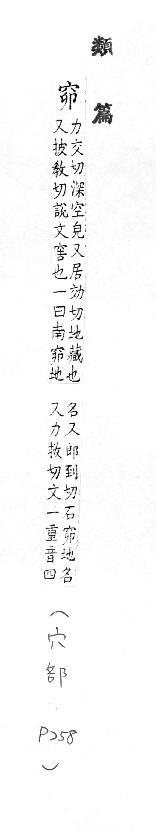 類篇
窌
力交切深空皃又居効切地藏也
又披敎切說文窖也一曰南窌地
名又郎到切石窌地名
又力救切文一重音四
（穴部 P258）